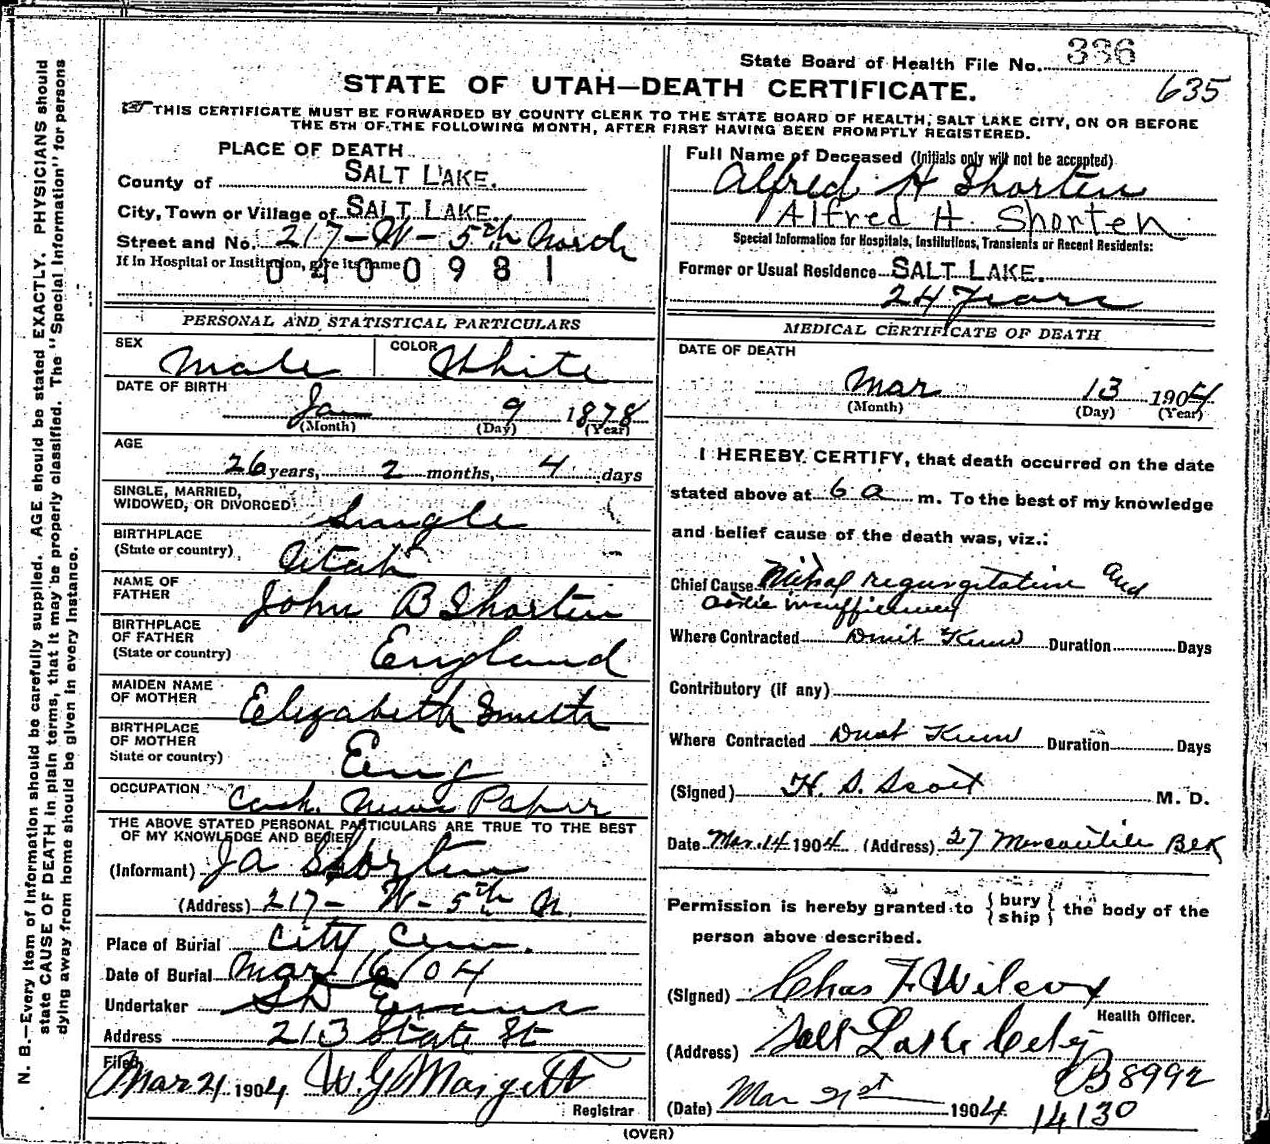 State Board of Health File No. 336
635
STATE OF UTAH—DEATH CERTIFICATE.
THIS CERTIFICATE MUST BE FORWARDED BY COUNTY CLERK TO THE STATE BOARD OF HEALTH, SALT LAKE CITY, ON OR BEFORE
THE 5TH OF THE FOLLOWING MONTH, AFTER FIRST HAVING BEEN PROMPTLY REGISTERED.
PLACE OF DEATH
County of SALT LAKE.
City, Town or Village of SALT LAKE.
Street and No. 217-W-5th North
If in Hospital or Institution, give its name
0400981
PERSONAL AND STATISTICAL PARTICULARS
SEX Male COLOR White
DATE OF BIRTH
Jan 9 1878
(Month) (Day) (Year)
AGE
26 years, 2 months, 4 days
SINGLE, MARRIED,
WIDOWED, OR DIVORCED Single
BIRTHPLACE
(State or country) Utah
NAME OF
FATHER John B Shorten
BIRTHPLACE
OF FATHER
(State or country) England
MAIDEN NAME
OF MOTHER Elizabeth Smith
BIRTHPLACE
OF MOTHER
State or country) Eng
OCCUPATION News Paper
THE ABOVE STATED PERSONAL PARTICULARS ARE TRUE TO THE BEST
OF MY KNOWLEDGE AND BELIEF
(Informant) Ja Shorten
(Address) 217- W- 5th N.
Place of Burial City Cem.
Date of Burial Mar 16/04
Undertaker S D Evans
Address 213 State St
Filed
Mar 21 1904 W. G. Margetts
Registrar
Full Name of Deceased (Initials only will not be accepted)
Alfred H Shorten
Alfred H. Shorten
Special Information for Hospitals, Institutions, Transients or Recent Residents:
Former or Usual Residence SALT LAKE.
24 Years
MEDICAL CERTIFICATE OF DEATH
DATE OF DEATH
Mar 13 1904
(Month) (Day) (Year)
I HEREBY CERTIFY, that death occurred on the date
stated above at 6 a m. To the best of my knowledge
and belief cause of the death was, viz.:
Chief Cause Mitral regurgitation and
aortic insufficiency
Where Contracted Dont Know Duration Days
Contributory (if any)
Where Contracted Dont Know Duration Days
(Signed) H. S. Scott M. D.
Date Mar. 14 1904 (Address) 27 Mercantile Blk
Permission is hereby granted to { bury ship } the body of the
person above described.
(Signed) Chas F. Wilcox
Health Officer.
(Address) Salt Lake City
B8992
(Date) Mar 21st 1904 14130
(OVER)
N. B.—Every item of information should be carefully supplied. AGE should be stated EXACTLY. PHYSICIANS should
state CAUSE OF DEATH in plain terms, that it may be properly classified. The "Special Information" for persons
dying away from home should be given in every instance.